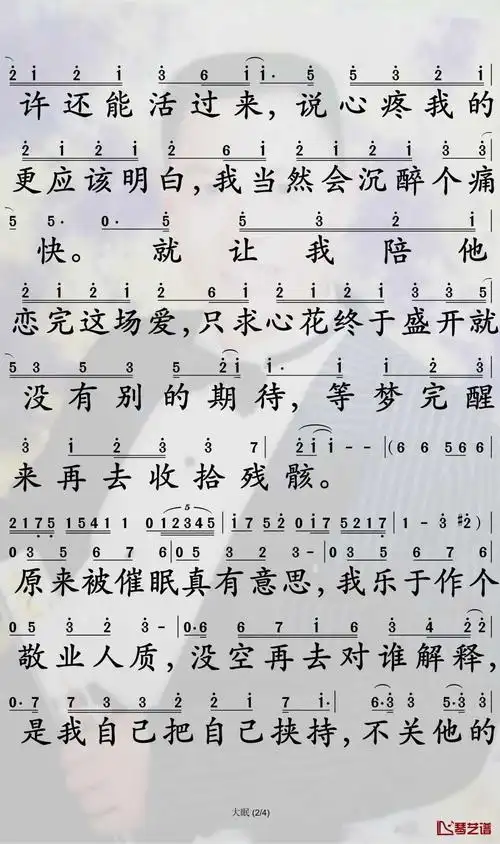 2̇ 1̇ 2̇ 1̇ 3̇ 6 1̇ 1̇· 5 5 3̇ 2̇ 1̇
许还能活过来，说心疼我的
2̇ 1̇ 2̇ 1̇ 2̇ 6 1̇ 2̇ 1̇ 2̇ 1̇ 3̇ 3̇
更应该明白，我当然会沉醉个痛
5 5· 0· 5 5 3̇ 2̇ 1̇
快。就让我陪他
2̇ 1̇ 2̇ 1̇ 2̇ 6 1̇ 2̇ 1̇ 2̇ 1̇ 3̇ 3̇ 5
恋完这场爱，只求心花终于盛开就
5 3 5 3 5 2̇ 1̇ 1̇· 1̇ 1̇ 2̇ 3̇
没有别的期待，等梦完醒
3̇ 1̇ 2̇ 3̇ 3̇ 7 2̇ 1̇ 1̇ - - (6 6 5 6 6
来再去收拾残骸。
2175 15541 1 012345 1752 017 5217 1 - 3 #2)
0 3 5 6 7 6 0 5 3 2 3 - 0 3 5 6 7 6
原来被催眠真有意思，我乐于作个
0 5 3 2 3 - 0·6 6 7 1̇ 6 3̇ 4̇ 2̇ 2̇
敬业人质，没空再去对谁解释，
0· 7 7 3 3 2̇ 2̇ 1̇ 7 1̇· 6·3̇ 5·3̇
是我自己把自己挟持，不关他的
大眠 (2/4)
琴艺谱